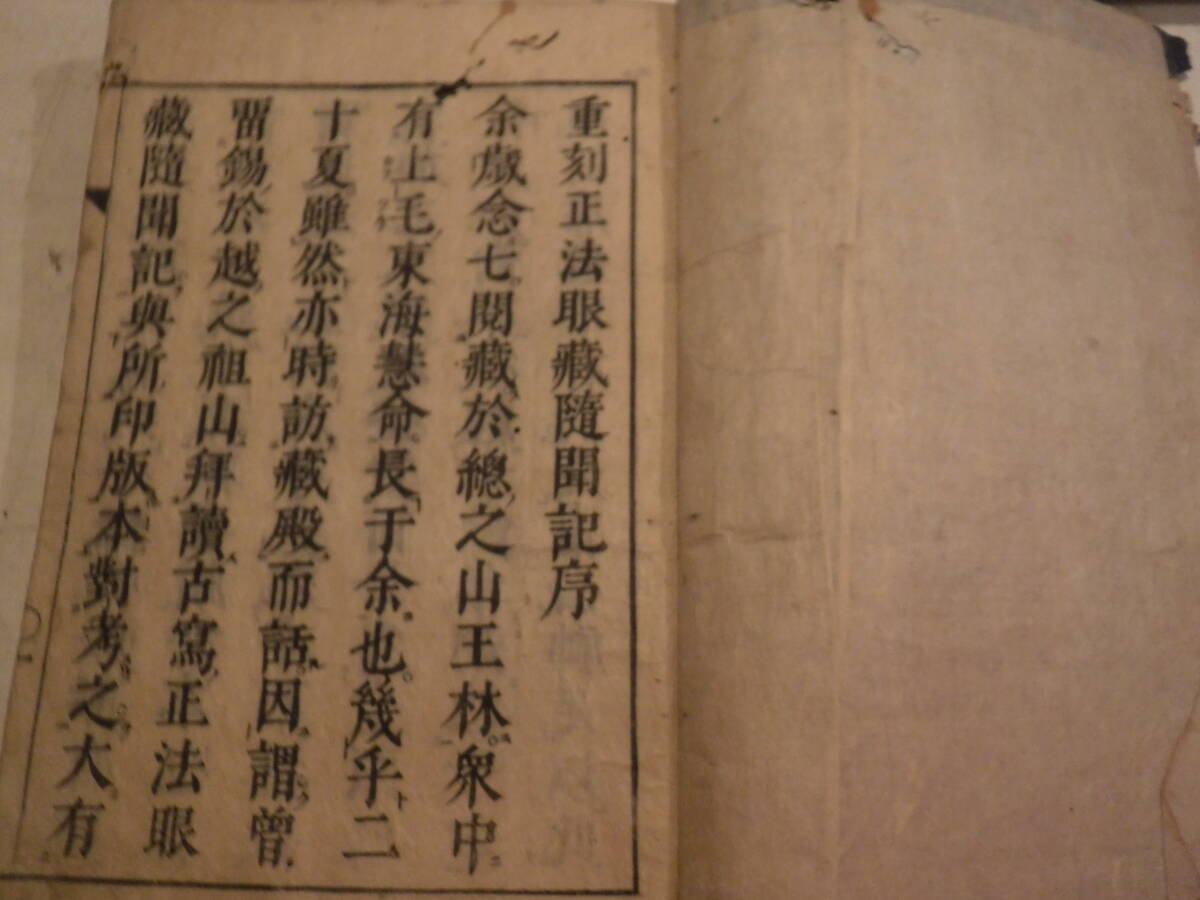 重刻正法眼藏隨聞記序
余歲念七閱藏於總之山王林衆中
有上毛東海慧命長于余也幾乎二
十夏雖然亦時訪藏殿而話因謂曾
留錫於越之祖山拜讀古寫正法眼
藏隨聞記與所印版本對考之大有